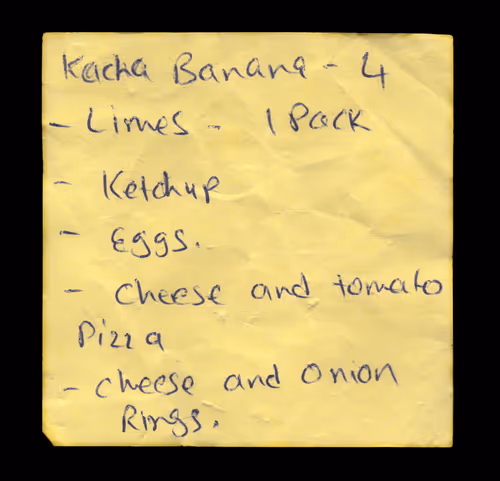 Kacha Banana - 4
- Limes - 1 Pack
- Ketchup
- Eggs.
- Cheese and tomato
Pizza
- Cheese and Onion
Rings.